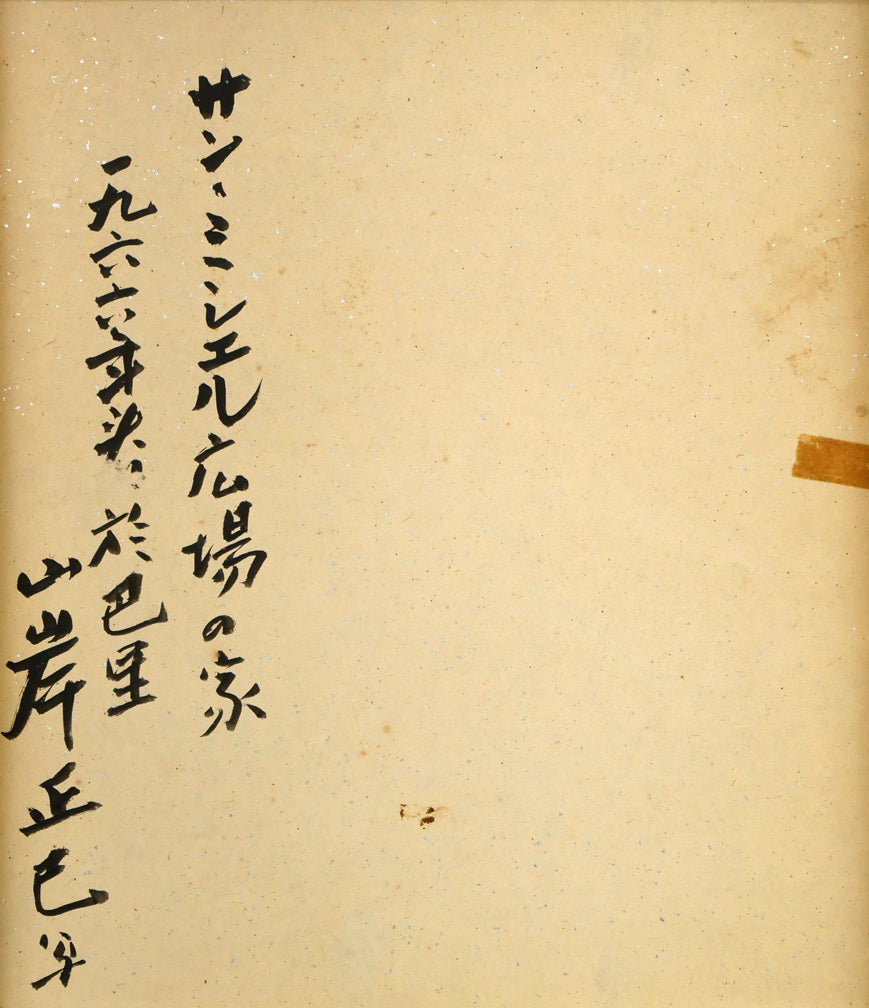 サン、ミシエル広場の家
一九六六年 於巴里
山岸正巳